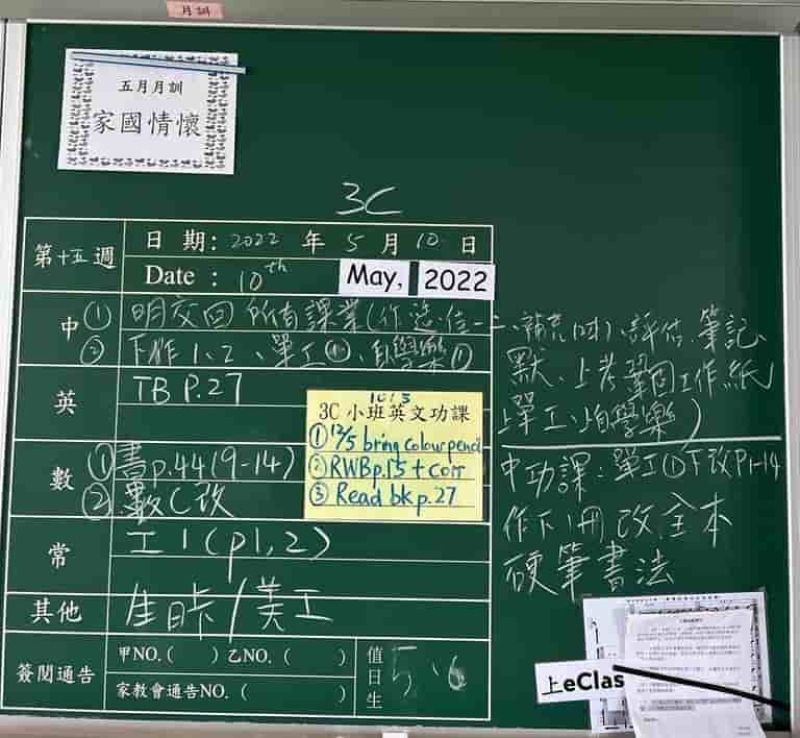 月訓
五月月訓
家國情懷
3C
第十五週
日 期: 2022 年 5 月 10 日
Date : 10th May, 2022
中 ① 明交回所有課業(作
② 下作1、2、單工④、自學樂①
默、上考鞏固工作紙
單工、自學樂)
英 TB P.27
10/5
3C 小班英文功課
① 12/5 bring colour pencil
② RWB p.15 + corr
③ Read bk p.27
數 ① 書p.44(9-14)
② 數C改
中功課:單工①下改P1-14
作下1冊改全本
硬筆書法
常 工1(p1,2)
其他 生日咭/美工
簽閱通告 甲NO.( ) 乙NO. ( )
家教會通告NO. ( )
值日生 5、6
上eClas